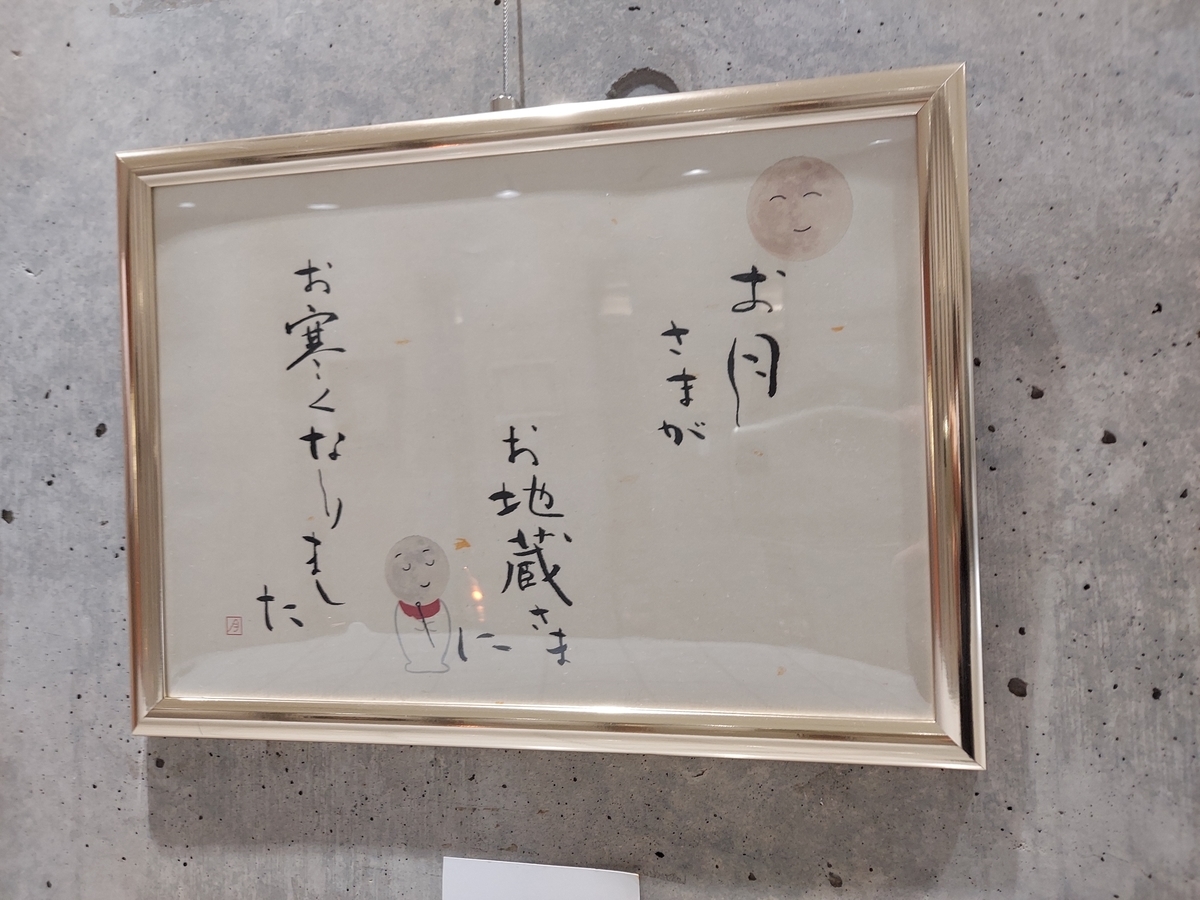 お月
さまが
お地蔵さま
に
お寒くなりまし
た
月